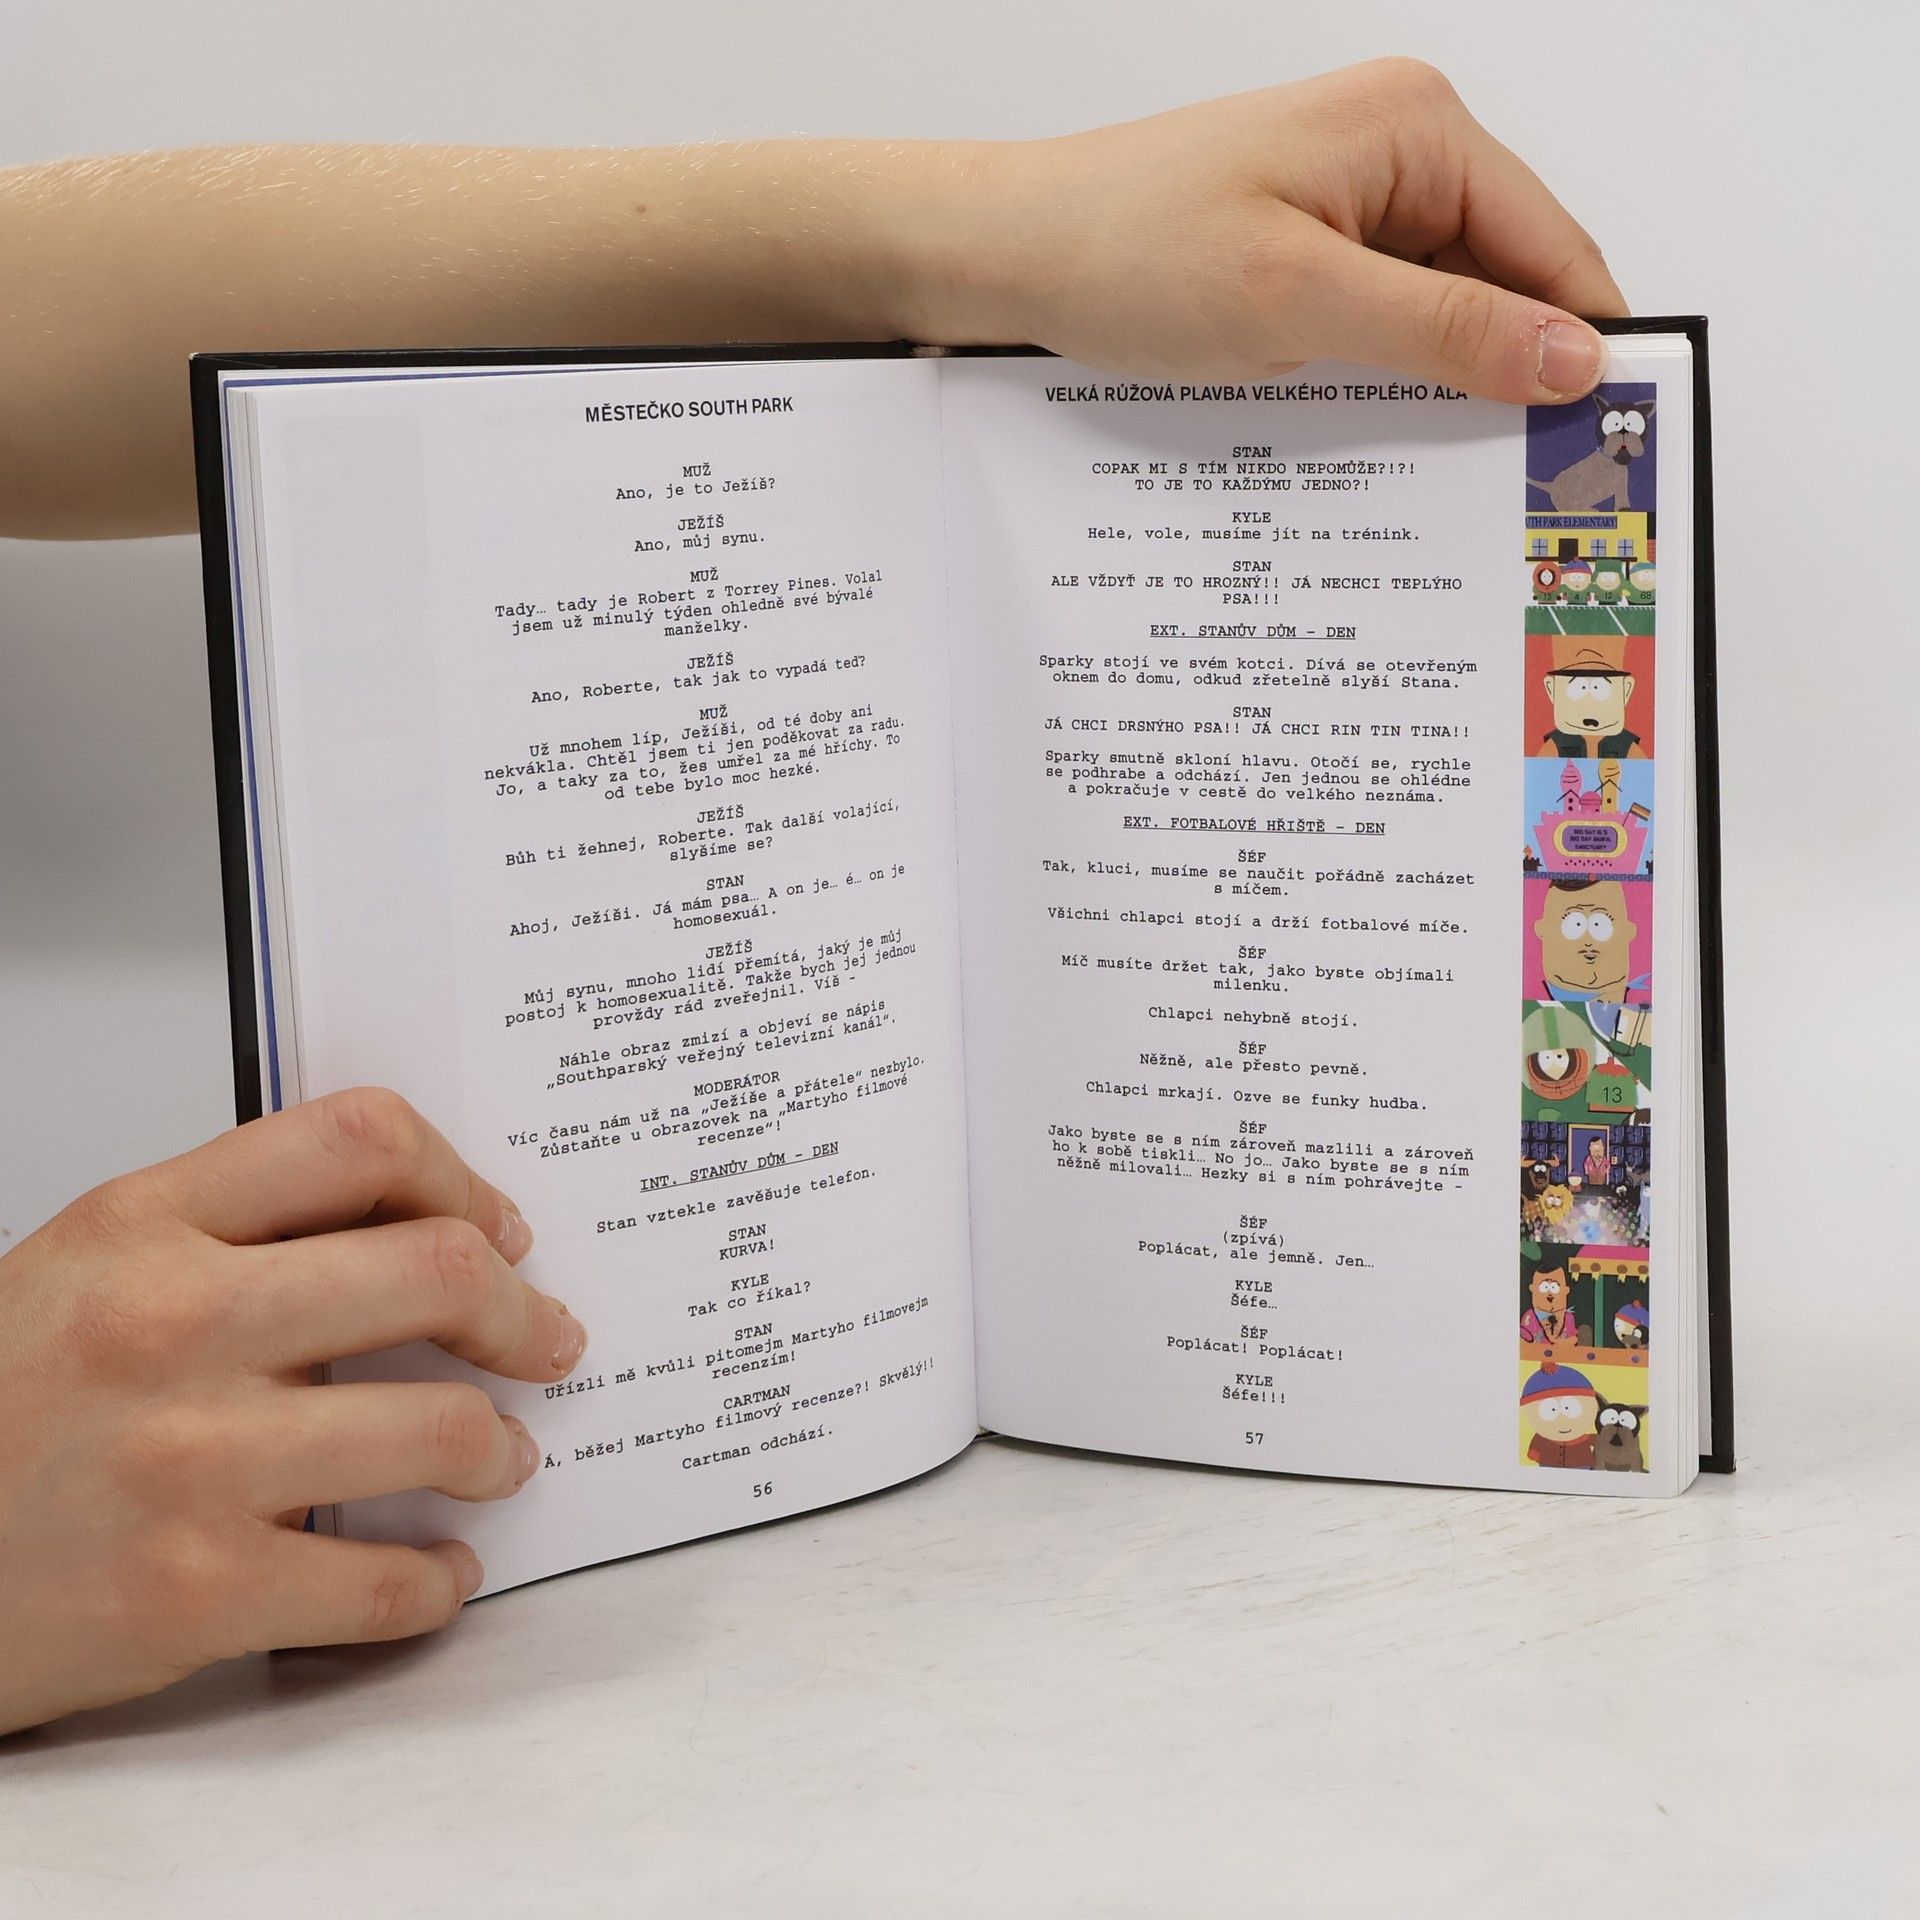 MĚSTEČKO SOUTH PARK
MUŽ
Ano, je to Ježíš?
JEŽÍŠ
Ano, můj synu.
MUŽ
Tady… tady je Robert z Torrey Pines. Volal
jsem už minulý týden ohledně své bývalé
manželky.
JEŽÍŠ
Ano, Roberte, tak jak to vypadá teď?
MUŽ
Už mnohem líp, Ježíši, od té doby ani
nekvákla. Chtěl jsem ti jen poděkovat za radu.
Jo, a taky za to, žes umřel za mé hříchy. To
od tebe bylo moc hezké.
JEŽÍŠ
Bůh ti žehnej, Roberte. Tak další volající,
slyšíme se?
STAN
Ahoj, Ježíši. Já mám psa… A on je… é… on je
homosexuál.
JEŽÍŠ
Můj synu, mnoho lidí přemítá, jaký je můj
postoj k homosexualitě. Takže bych jej jednou
provždy rád zveřejnil. Víš -
Náhle obraz zmizí a objeví se nápis
„Southparský veřejný televizní kanál“.
MODERÁTOR
Víc času nám už na „Ježíše a přátele“ nezbylo.
Zůstaňte u obrazovek na „Martyho filmové
recenze“!
INT. STANŮV DŮM – DEN
Stan vztekle zavěšuje telefon.
STAN
KURVA!
KYLE
Tak co říkal?
STAN
Uřízli mě kvůli pitomejm Martyho filmovejm
recenzím!
CARTMAN
Á, běžej Martyho filmový recenze?! Skvělý!!
Cartman odchází.
56
VELKÁ RŮŽOVÁ PLAVBA VELKÉHO TEPLÉHO ALA
STAN
COPAK MI S TÍM NIKDO NEPOMŮŽE?!?!
TO JE TO KAŽDÝMU JEDNO?!
KYLE
Hele, vole, musíme jít na trénink.
STAN
ALE VŽDYŤ JE TO HROZNÝ!! JÁ NECHCI TEPLÝHO
PSA!!!
EXT. STANŮV DŮM – DEN
Sparky stojí ve svém kotci. Dívá se otevřeným
oknem do domu, odkud zřetelně slyší Stana.
STAN
JÁ CHCI DRSNÝHO PSA!! JÁ CHCI RIN TIN TINA!!
Sparky smutně skloní hlavu. Otočí se, rychle
se podhrabe a odchází. Jen jednou se ohlédne
a pokračuje v cestě do velkého neznáma.
EXT. FOTBALOVÉ HŘIŠTĚ – DEN
ŠÉF
Tak, kluci, musíme se naučit pořádně zacházet
s míčem.
Všichni chlapci stojí a drží fotbalové míče.
ŠÉF
Míč musíte držet tak, jako byste objímali
milenku.
Chlapci nehybně stojí.
ŠÉF
Něžně, ale přesto pevně.
Chlapci mrkají. Ozve se funky hudba.
ŠÉF
Jako byste se s ním zároveň mazlili a zároveň
ho k sobě tiskli… No jo… Jako byste se s ním
něžně milovali… Hezky si s ním pohrávejte -
ŠÉF
(zpívá)
Poplácat, ale jemně. Jen…
KYLE
Šéfe…
ŠÉF
Poplácat! Poplácat!
KYLE
Šéfe!!!
57
UTH PARK ELEMENTARY
13 4 12 68
BIG GAY AL'S
BIG GAY ANIMAL
SANCTUARY
13